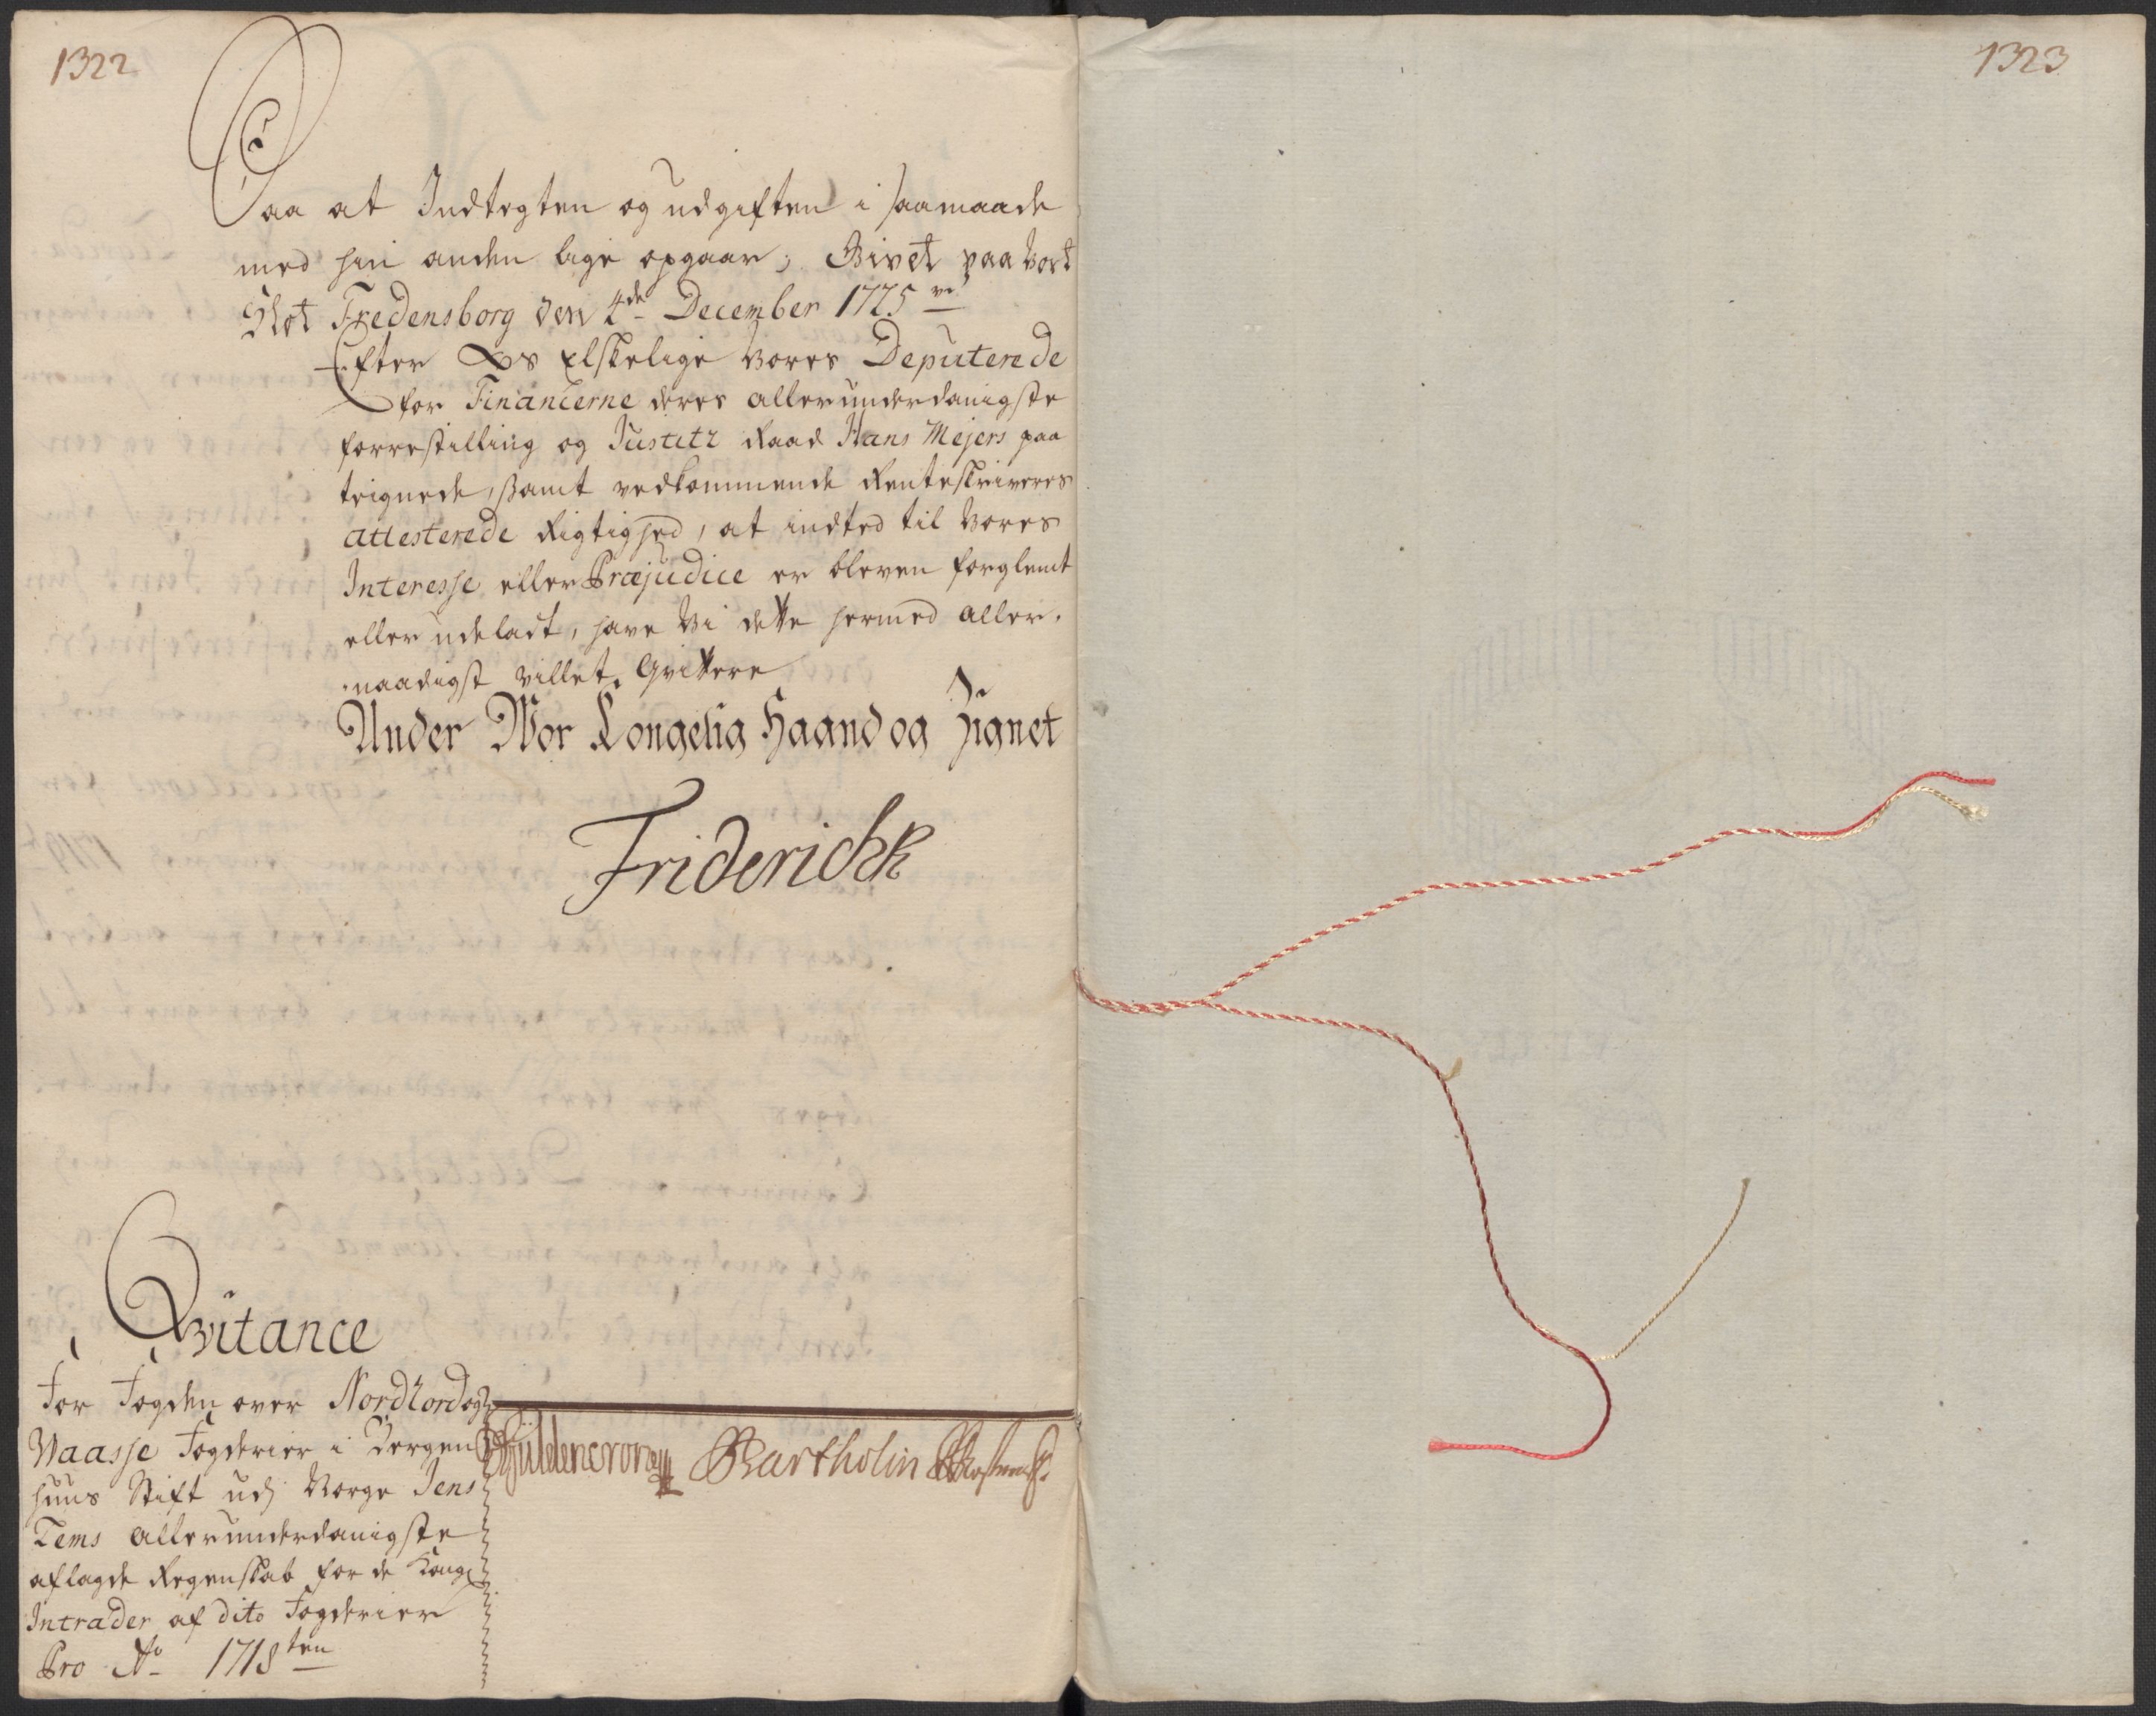 1322
Saa at Indtegten og udgiften i saamaade
med hin anden lige opgaar; Givet paa Vort
Slot Fredensborg den 4de December 1725ve
Efter Os Elskelige Vores Deputerede
for Financerne deres allerunderdanigste
forrestilling og Justitz Raad Hans Mejers paa
teignede, samt vedkommende Renteskriveres
attesterede Rigtighed, at indted til Vores
Interesse eller Præjudice er bleven forglemt
eller udeladt, have Vi dette hermed aller-
naadigst villet Qvittere
Under Wor Kongelig Haand og Zignet
FriderichR
Qvitance
For Fogden over Nordhord og
Waasse Fogderier i Bergen
huus Stift udj Norge Jens
Tems allerunderdanigste
aflagde Regenskab for de Kongl
Intrader af dito Fogderier
Pro Ao 1718ten
Güldencrone Bartholin
1323